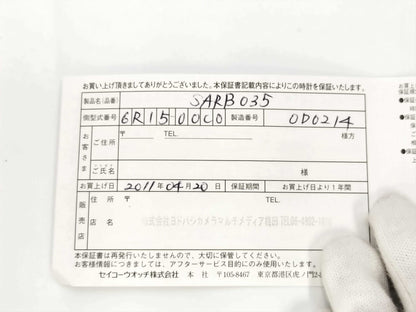 お買い上げ頂きましてありがとうございました。本保証書記載内容によりこの時計を保証いたします。
製品名(品番) SARB035
個型式番号 6R15-00C0 製造番号 0D0214
お客さま ご住所 〒 TEL. 様方
ご氏名 様
お買上げ日 2011年04月20日 保証期間 お買上げ日より1年間
販売店 住所 〒
店名 株式会社ヨドバシカメラマルチメディア梅田 TEL06-4802-
本保証書は再発行いたしませんので、大切に保管してください。
お客様情報につきましては、アフターサービス目的にのみ使用いたします。
セイコーウオッチ株式会社 本社 〒105-8467 東京都港区虎ノ門2-